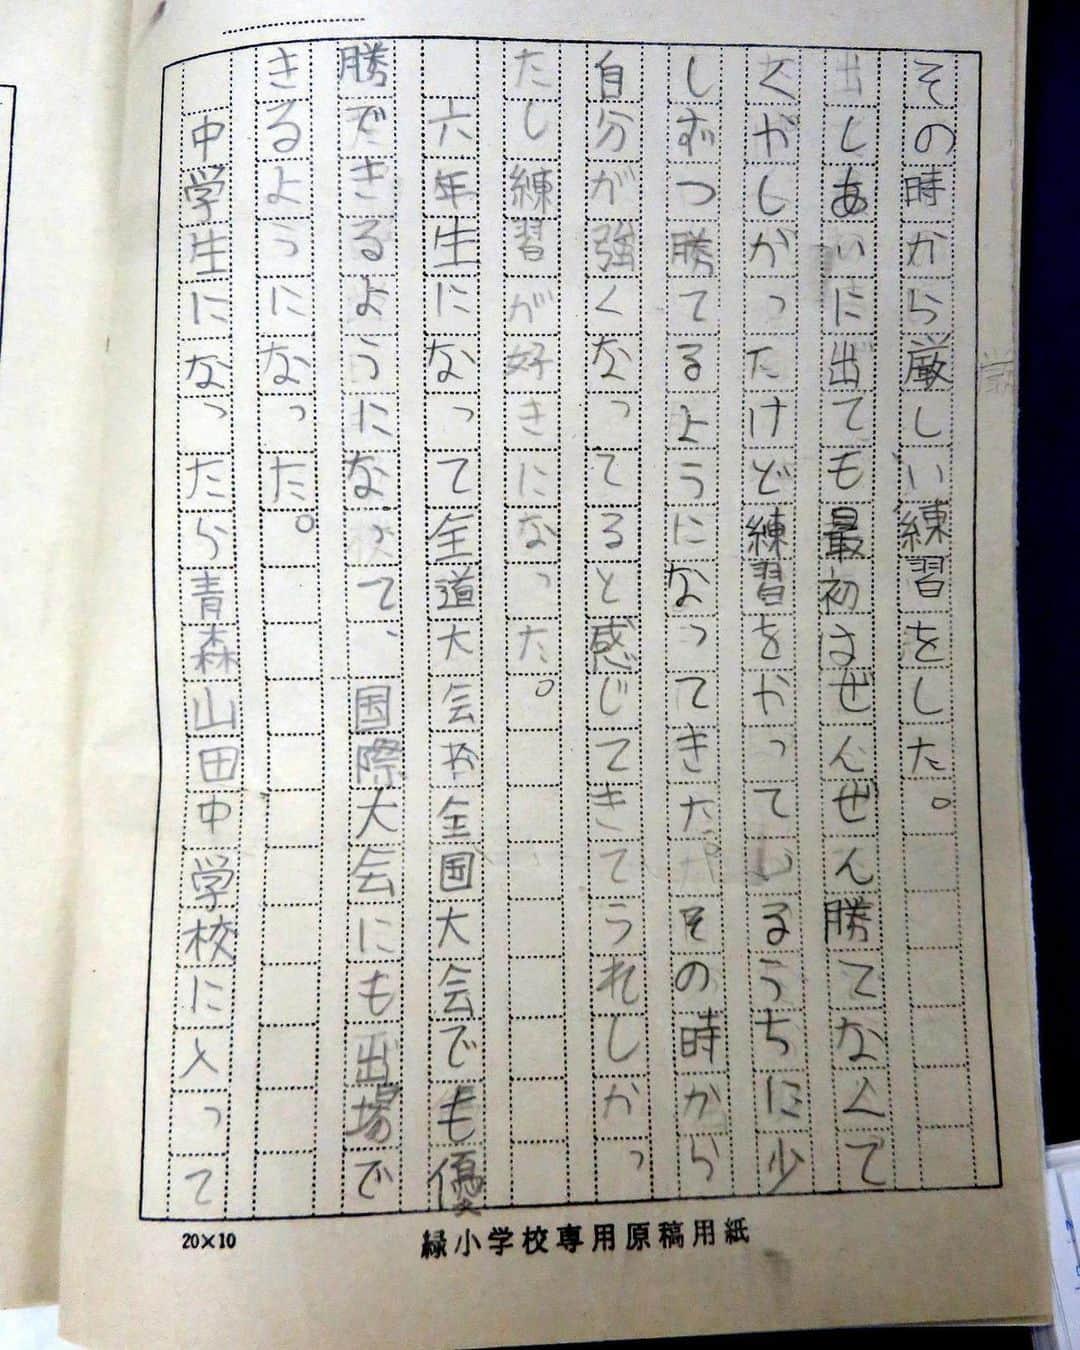 その時から厳しい練習をした。
出しあいに出ても最初はぜんぜん勝てなくて
くがしがったけど練習をかっているうちに少
しずつ勝てるようになってきた。その時から
自分が強くなってると感じてきてうれしかっ
たし練習が好きになった。
六年生になって全道大会や全国大会でも優
勝できるようになって、国際大会にも出場で
きるようになった。
中学生になったら青森山田中学校に入って
20×10
緑小学校専用原稿用紙